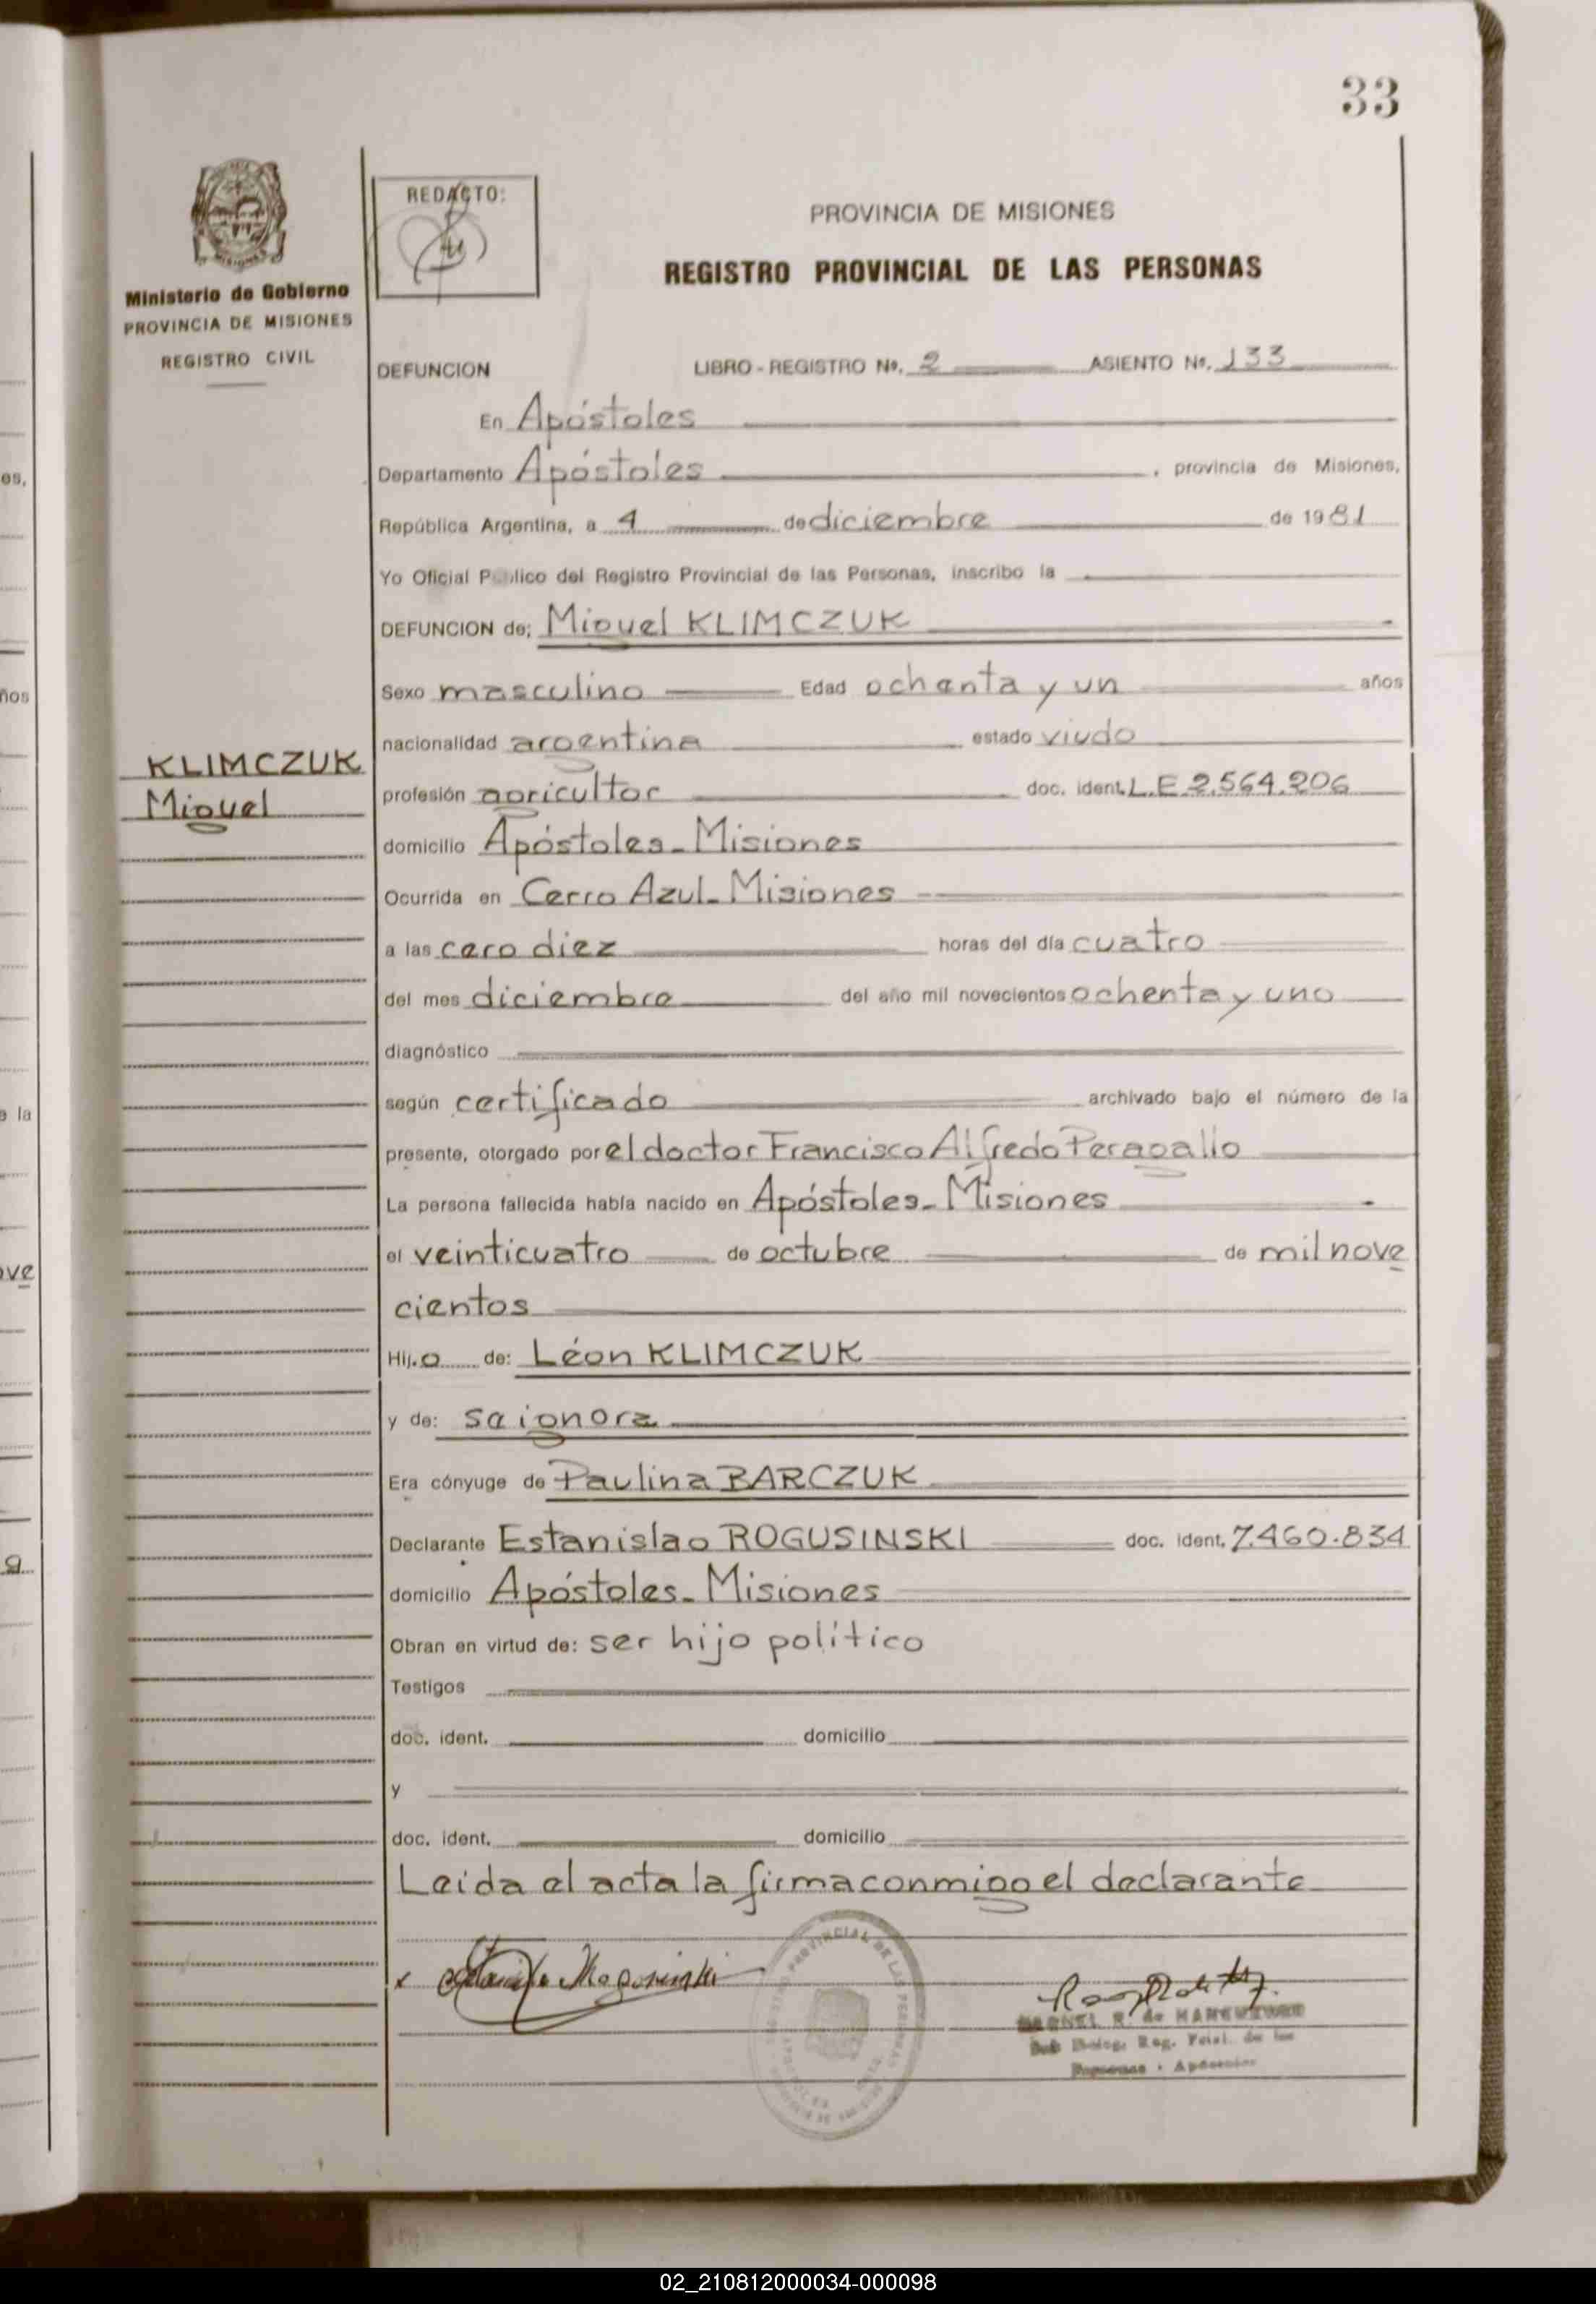 33
REDACTO:
PROVINCIA DE MISIONES
REGISTRO PROVINCIAL DE LAS PERSONAS
Ministerio de Gobierno
PROVINCIA DE MISIONES
REGISTRO CIVIL
DEFUNCION LIBRO - REGISTRO Nº. 2 ASIENTO Nº. 133
En Apóstoles
Departamento Apóstoles, provincia de Misiones,
República Argentina, a 4 de diciembre de 1981
Yo Oficial Público del Registro Provincial de las Personas, inscribo la
DEFUNCION de; Miguel KLIMCZUK
Sexo masculino Edad ochenta y un años
nacionalidad argentina estado viudo
KLIMCZUK
Miguel
profesión agricultor doc. ident. L.E 2.564.206
domicilio Apóstoles - Misiones
Ocurrida en Cerro Azul - Misiones
a las cero diez horas del día cuatro
del mes diciembre del año mil novecientos ochenta y uno
diagnóstico
según certificado archivado bajo el número de la
presente, otorgado por el doctor Francisco Alfredo Peragallo
La persona fallecida había nacido en Apóstoles - Misiones
el veinticuatro de octubre de mil nove
cientos
Hij.o de: Léon KLIMCZUK
y de: se ignora
Era cónyuge de Paulina BARCZUK
Declarante Estanislao ROGUSINSKI doc. ident. 7.460.834
domicilio Apóstoles - Misiones
Obran en virtud de: ser hijo político
Testigos
doc. ident. domicilio
y
doc. ident. domicilio
Leida el acta la firma conmigo el declarante
os,
ños
e la
ove
a
02_210812000034-000098